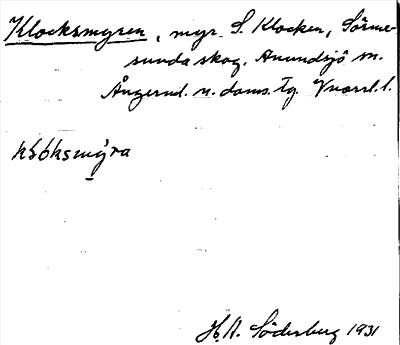 Klocksmyren, myr S. Klocken, Sörme-
sunda skog. Anundsjö sn.
Ångerml. n. doms. tg. Vnorrl. l.
klóksmýra
H. A. Söderberg 1931